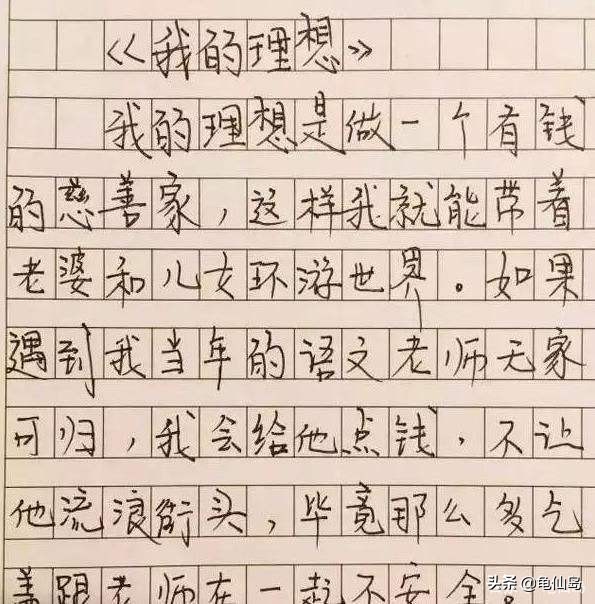 《我的理想》
我的理想是做一个有钱
的慈善家，这样我就能带着
老婆和儿女环游世界。如果
遇到我当年的语文老师无家
可归，我会给他点钱，不让
他流浪街头，毕竟那么多乞
丐跟老师在一起不安全。
头条@龟仙岛